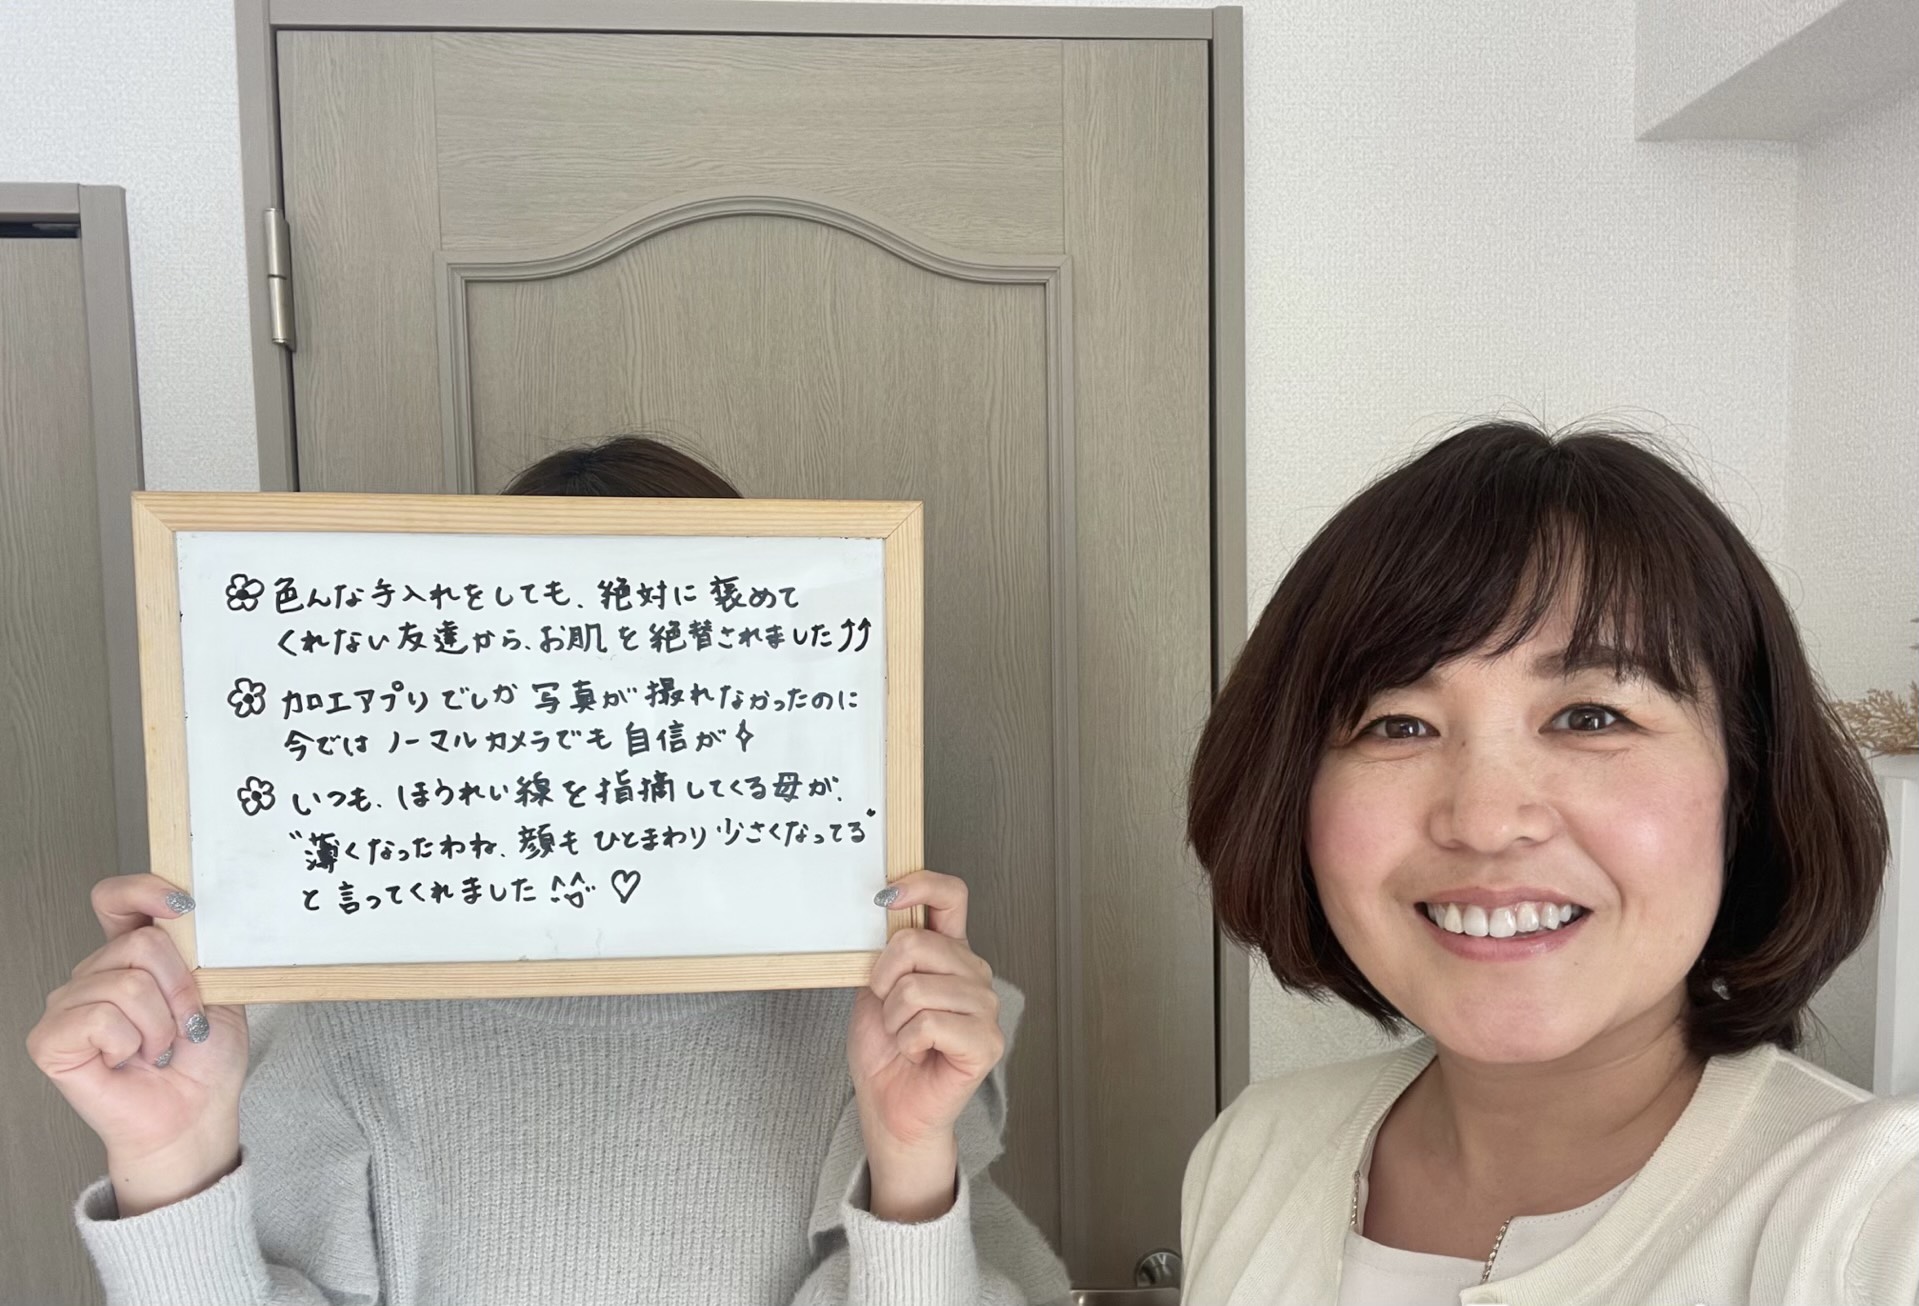 色んな手入れをしても、絶対に褒めて
くれない友達から、お肌を絶賛されました⤴⤴
加工アプリでしか写真が撮れなかったのに
今ではノーマルカメラでも自信が✧
いつも、ほうれい線を指摘してくる母が、
"薄くなったわね、顔もひとまわり少さくなってる"
と言ってくれました ^^ ♡